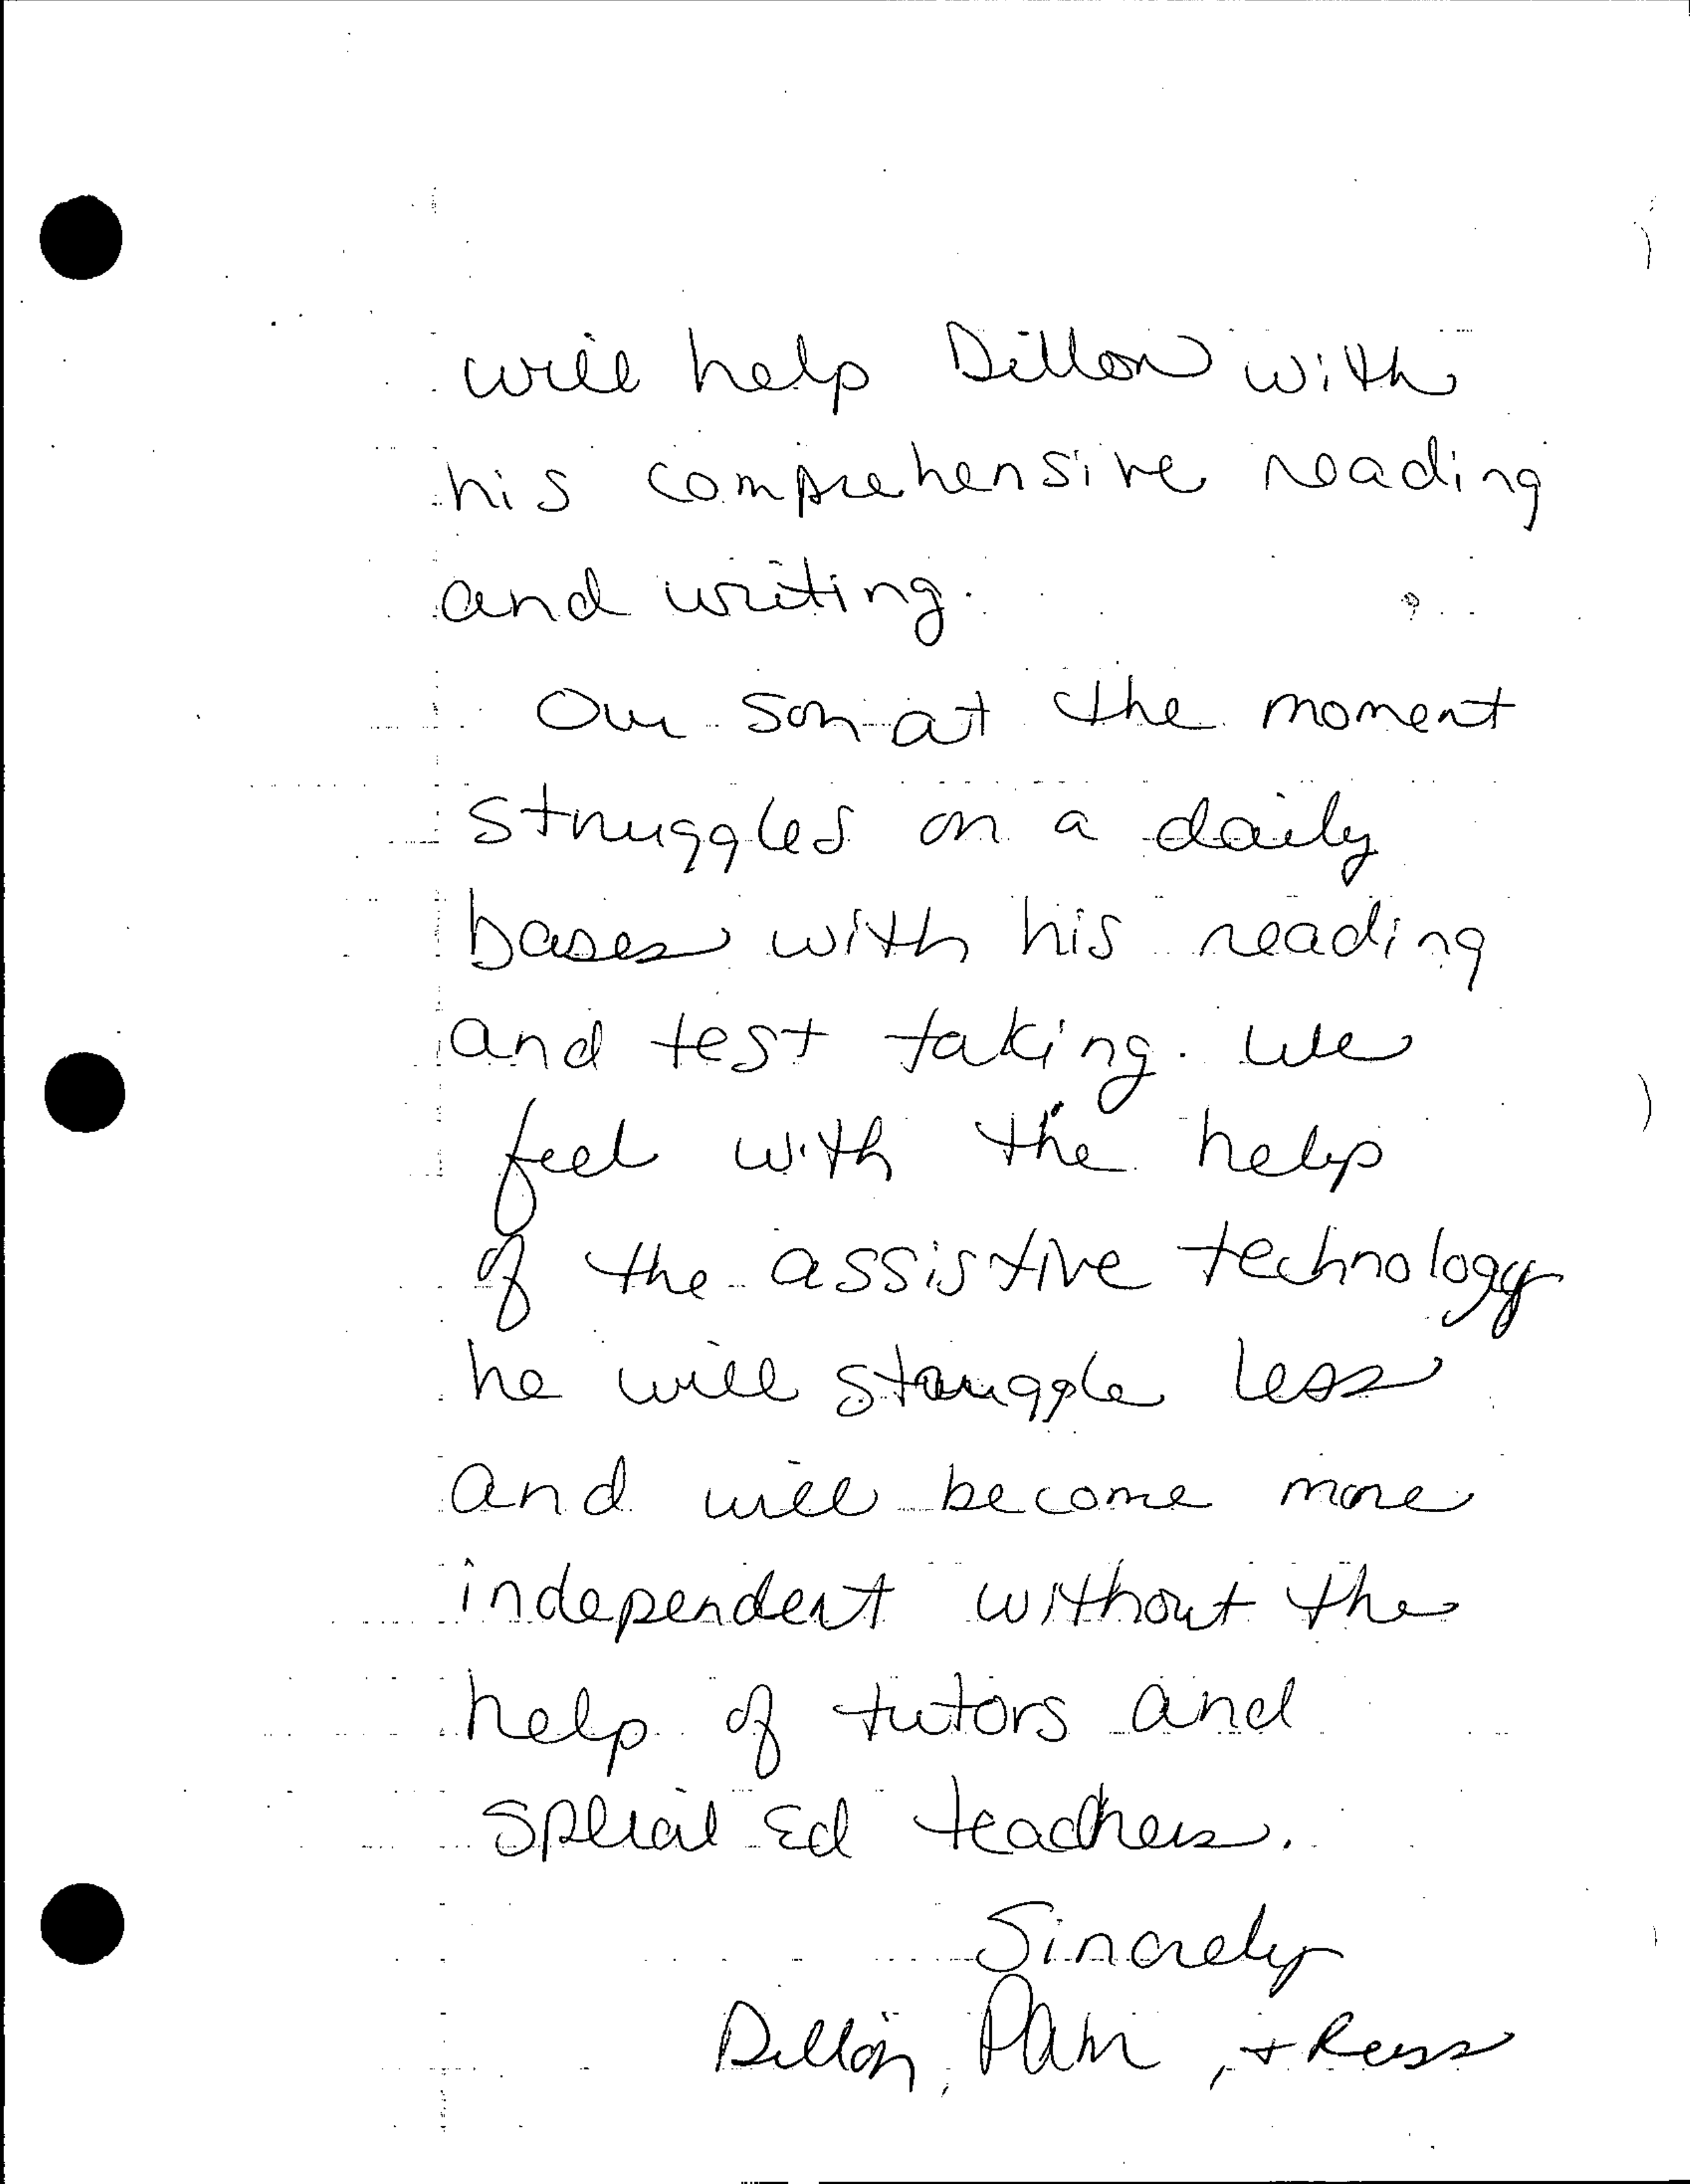 will help Dillon with
his comprehensive reading
and writing.
Our son at the moment
struggles on a daily
bases with his reading
and test taking. We
feel with the help
of the assistive technology
he will struggle less
and will become more
independent without the
help of tutors and
special Ed teachers.
Sincrely
Dillon, Pam, + Russ